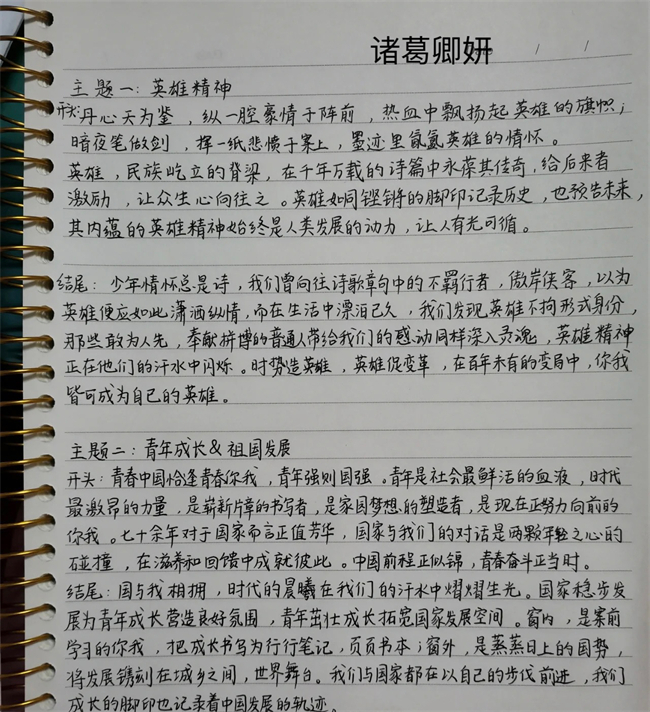 诸葛卿妍
主题一:英雄精神
开头:丹心天为鉴,纵一腔豪情于阵前,热血中飘扬起英雄的旗帜;
暗夜笔做剑,挥一纸悲愤于案上,墨迹里氤氲英雄的情怀。
英雄,民族屹立的脊梁,在千年万载的诗篇中永葆其传奇,给后来者
激励,让众生心向往之。英雄如同铿锵的脚印记录历史,也预告未来,
其内蕴的英雄精神始终是人类发展的动力,让人有光可循。
结尾:少年情怀总是诗,我们曾向往诗歌章句中的不羁行者,傲岸侠客,以为
英雄便应如此潇洒纵情,而在生活中漂泊已久,我们发现英雄不拘形式身份,
那些敢为人先,奉献拼搏的普通人带给我们的感动同样深入灵魂,英雄精神
正在他们的汗水中闪烁。时势造英雄,英雄促变革,在百年未有的变局中,你我
皆可成为自己的英雄。
主题二:青年成长&祖国发展
开头:青春中国恰逢青春你我,青年强则国强。青年是社会最鲜活的血液,时代
最激昂的力量,是崭新片章的书写者,是家国梦想的塑造者,是现在正努力向前的
你我。七十余年对于国家而言正值芳华,国家与我们的对话是两颗年轻之心的
碰撞,在滋养和回馈中成就彼此。中国前程正似锦,青春奋斗正当时。
结尾:国与我相拥,时代的晨曦在我们的汗水中熠熠生光。国家稳步发
展为青年成长营造良好氛围,青年茁壮成长拓宽国家发展空间。窗内,是案前
学习的你我,把成长书写为行行笔记,页页书本;窗外,是蒸蒸日上的国势,
将发展镌刻在城乡之间,世界舞台。我们与国家都在以自己的步伐前进,我们
成长的脚印也记录着中国发展的轨迹。